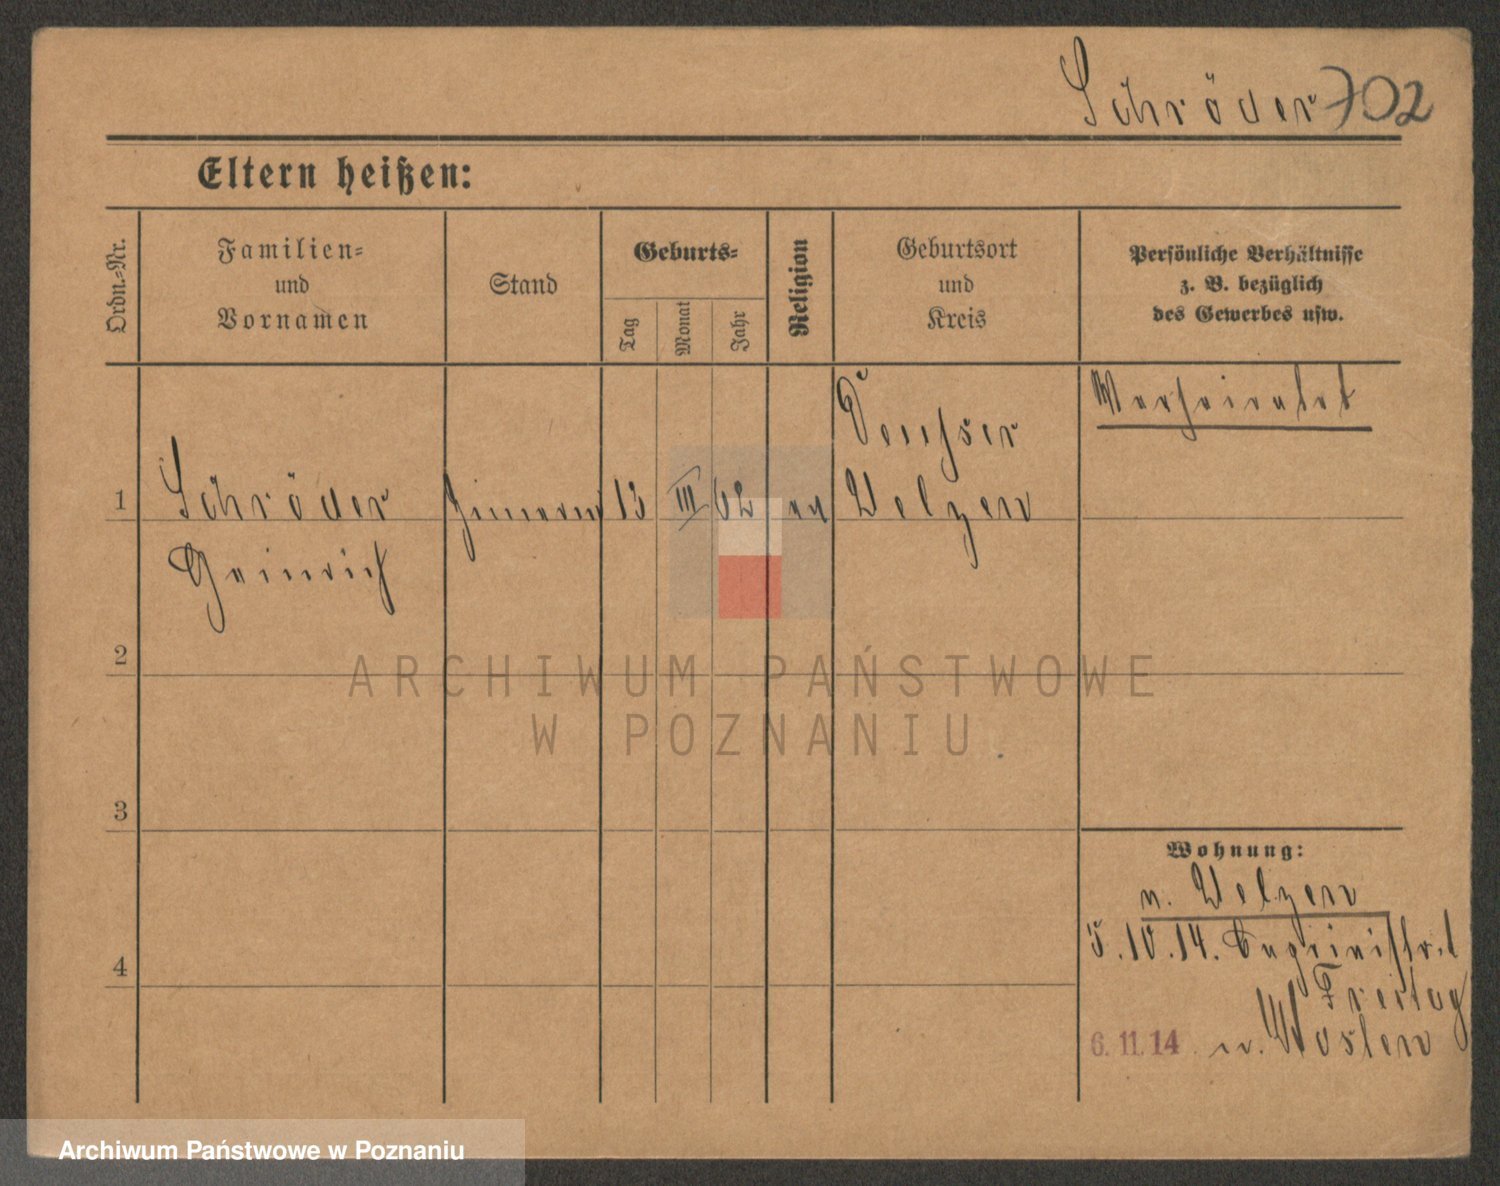 Schröder 702
Eltern heißen:
Ordn.-Nr.
Familien-
und
Vornamen
Stand
Geburts-
Tag
Monat
Jahr
Religion
Geburtsort
und
Kreis
Persönliche Verhältnisse
z. B. bezüglich
des Gewerbes usw.
Verheiratet
1
Schröder
13 III 62 ev
Uelzen
Heinrich
2
ARCHIWUM PAŃSTWOWE
W POZNANIU
3
Wohnung:
n. Uelzen
4
5.10.14.
Freitag
6.11.14 n. Posten
Archiwum Państwowe w Poznaniu